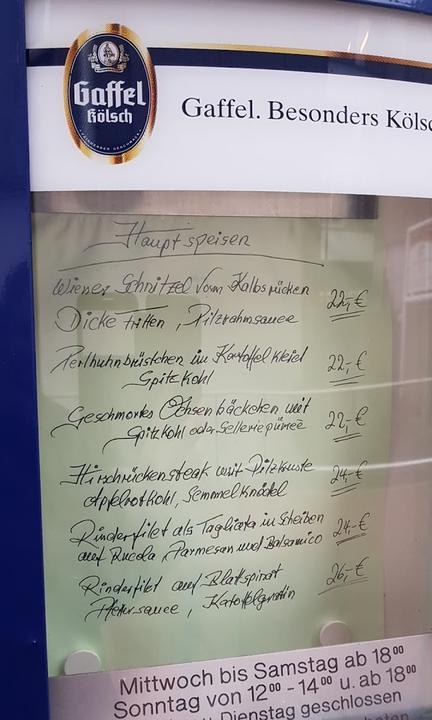 Gaffel
Kölsch
Gaffel. Besonders Kölsc
Hauptspeisen
Wiener Schnitzel vom Kalbsrücken
Dicke Fritten, Pilzrahmsauce 22,-€
Perlhuhnbrüstchen im Kartoffelkleid
Spitzkohl 22,-€
Geschmortes Ochsenbäckchen mit
Spitzkohl oder Selleriepüree 22,-€
Hirschrückensteak mit Pilzkruste
Apfelrotkohl, Semmelknödel 24,-€
Rinderfilet als Tagliata in Scheiben
auf Rucola, Parmesan und Balsamico 24,-€
Rinderfilet auf Blattspinat
Pfeffersauce, Kartoffelgratin 26,-€
Mittwoch bis Samstag ab 18⁰⁰
Sonntag von 12⁰⁰ - 14⁰⁰ u. ab 18⁰⁰
Dienstag geschlossen